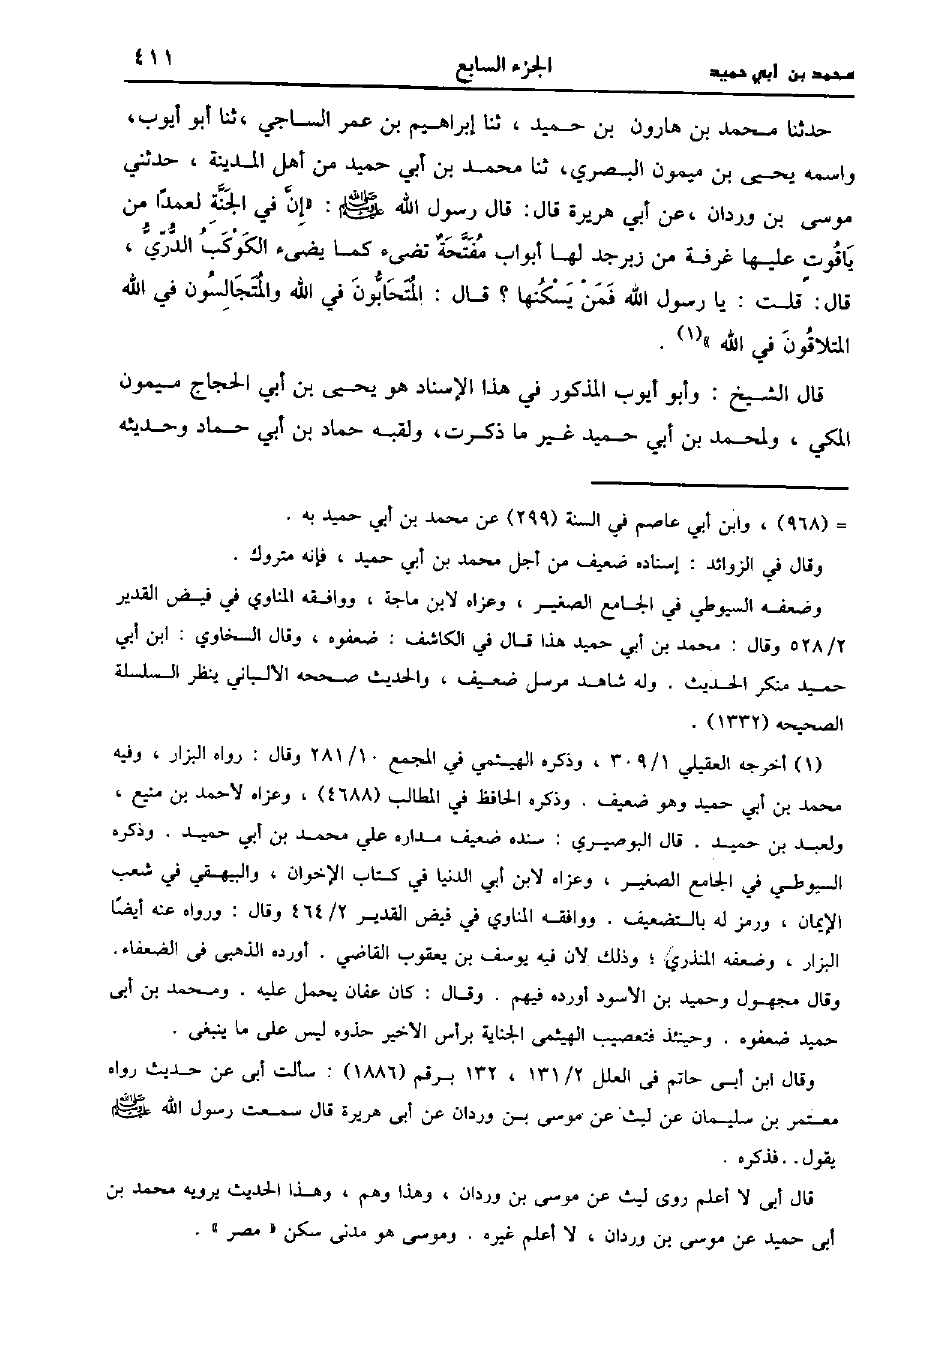 محمد بن أبي حميد
الجزء السابع
٤١١
حدثنا محمد بن هارون بن حميد ، ثنا إبراهيم بن عمر الساجي ،ثنا أبو أيوب،
واسمه يحيى بن ميمون البصري، ثنا محمد بن أبي حميد من أهل المدينة ، حدثني
موسى بن وردان ،عن أبي هريرة قال: قال رسول الله ﷺ : «إنَّ في الجَنَّةِ لعمدًا من
يَاقُوتٍ عليها غرفة من زبرجد لها أبواب مُفَتَّحَةٌ تضىء كما يضىء الكَوْكَبُ الدُّرِّيُّ ،
قال: قلت : يا رسول الله فَمَنْ يَسْكُنها ؟ قال : المُتَحَابُّونَ في الله والمُتَجَالِسُون في الله
المتلاقُونَ في الله »(١) .
قال الشيخ : وأبو أيوب المذكور في هذا الإسناد هو يحيى بن أبي الحجاج ميمون
المكي ، ولمحمد بن أبي حميد غير ما ذكرت، ولقبه حماد بن أبي حماد وحديثه
= (٩٦٨) ، وابن أبي عاصم في السنة (٢٩٩) عن محمد بن أبي حميد به .
وقال في الزوائد : إسناده ضعيف من أجل محمد بن أبي حميد ، فإنه متروك .
وضعفه السيوطي في الجامع الصغير ، وعزاه لابن ماجة ، ووافقه المناوي في فيض القدير
٥٢٨/٢ وقال : محمد بن أبي حميد هذا قال في الكاشف : ضعفوه ، وقال السخاوي : ابن أبي
حميد منكر الحديث . وله شاهد مرسل ضعيف ، والحديث صححه الألباني ينظر السلسلة
الصحيحه (١٣٣٢) .
(١) أخرجه العقيلي ٣٠٩/١ ، وذكره الهيثمي في المجمع ٢٨١/١٠ وقال : رواه البزار ، وفيه
محمد بن أبي حميد وهو ضعيف . وذكره الحافظ في المطالب (٤٦٨٨) ، وعزاه لأحمد بن منيع ،
ولعبد بن حميد . قال البوصيري : سنده ضعيف مداره علي محمد بن أبي حميد . وذكره
السيوطي في الجامع الصغير ، وعزاه لابن أبي الدنيا في كتاب الإخوان ، والبيهقي في شعب
الإيمان ، ورمز له بالتضعيف . ووافقه المناوي في فيض القدير ٤٦٤/٢ وقال : ورواه عنه أيضًا
البزار ، وضعفه المنذري ؛ وذلك لأن فيه يوسف بن يعقوب القاضي . أورده الذهبى فى الضعفاء.
وقال مجهول وحميد بن الأسود أورده فيهم . وقال : كان عفان يحمل عليه . ومحمد بن أبى
حميد ضعفوه . وحينئذ فتعصيب الهيثمى الجناية برأس الأخير حذوه ليس على ما ينبغى .
وقال ابن أبى حاتم فى العلل ١٣١/٢ ، ١٣٢ برقم (١٨٨٦) : سألت أبى عن حديث رواه
معتمر بن سليمان عن ليث عن موسى بن وردان عن أبى هريرة قال سمعت رسول الله ﷺ
يقول.. فذكره .
قال أبى لا أعلم روى ليث عن موسى بن وردان ، وهذا وهم ، وهذا الحديث يرويه محمد بن
أبى حميد عن موسى بن وردان ، لا أعلم غيره . وموسى هو مدنى سكن « مصر » .